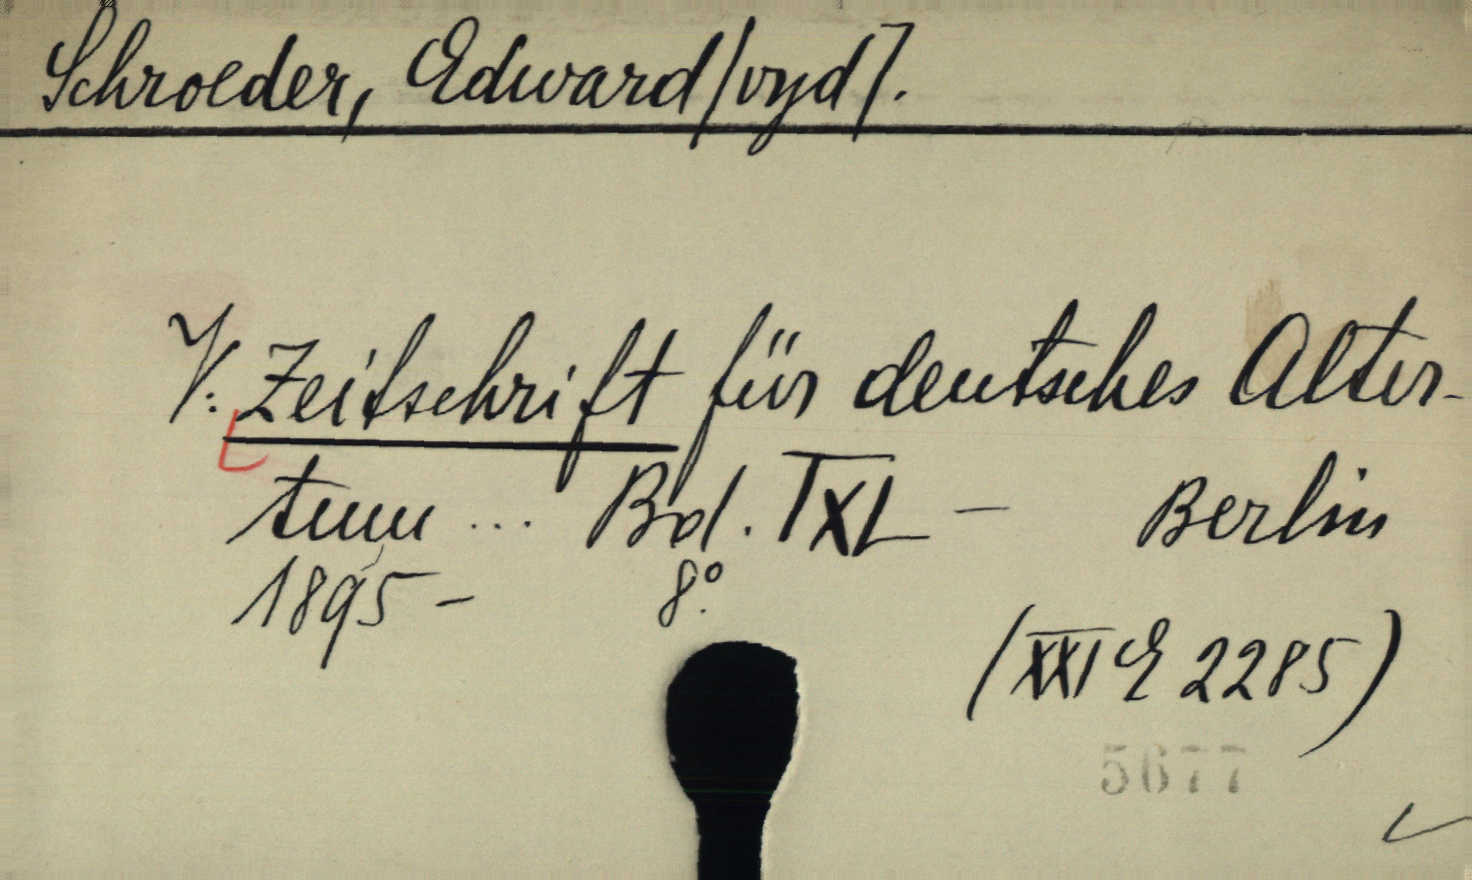 Schroeder, Edward [vyd].
V: Zeitschrift für deutsches Alter-
tum ... Bd. IXL – Berlin
1895 – 8°.
(XXI E 2285)
5677